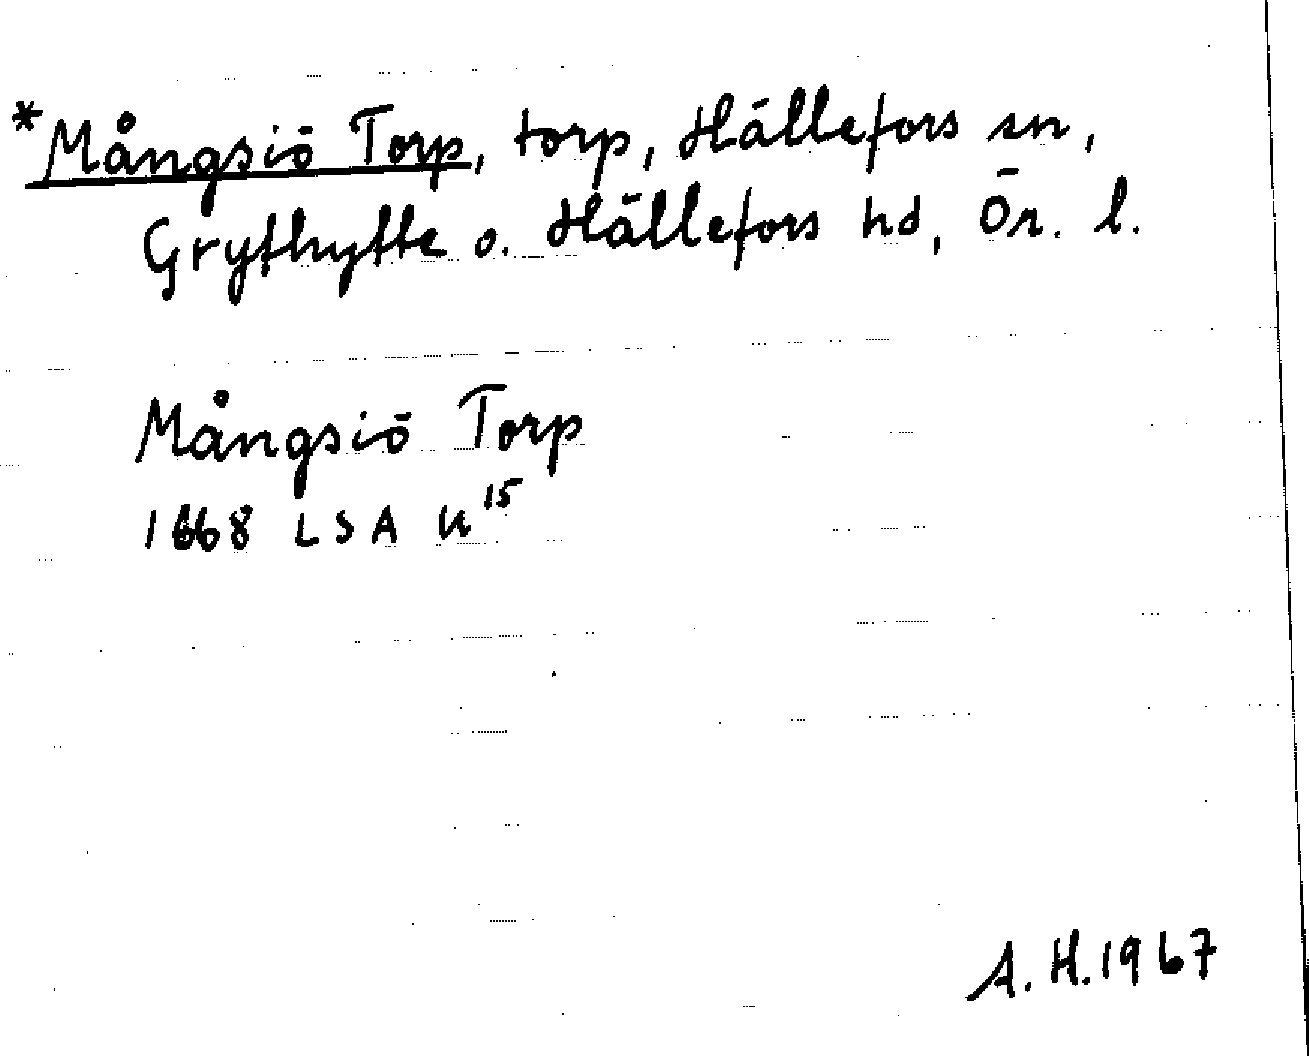 *Mångsiö Torp, torp, Hällefors sn,
Grythytte o. Hällefors hd, Ör. l.
Mångsiö Torp
1668 LSA U¹⁵
A. H. 1967